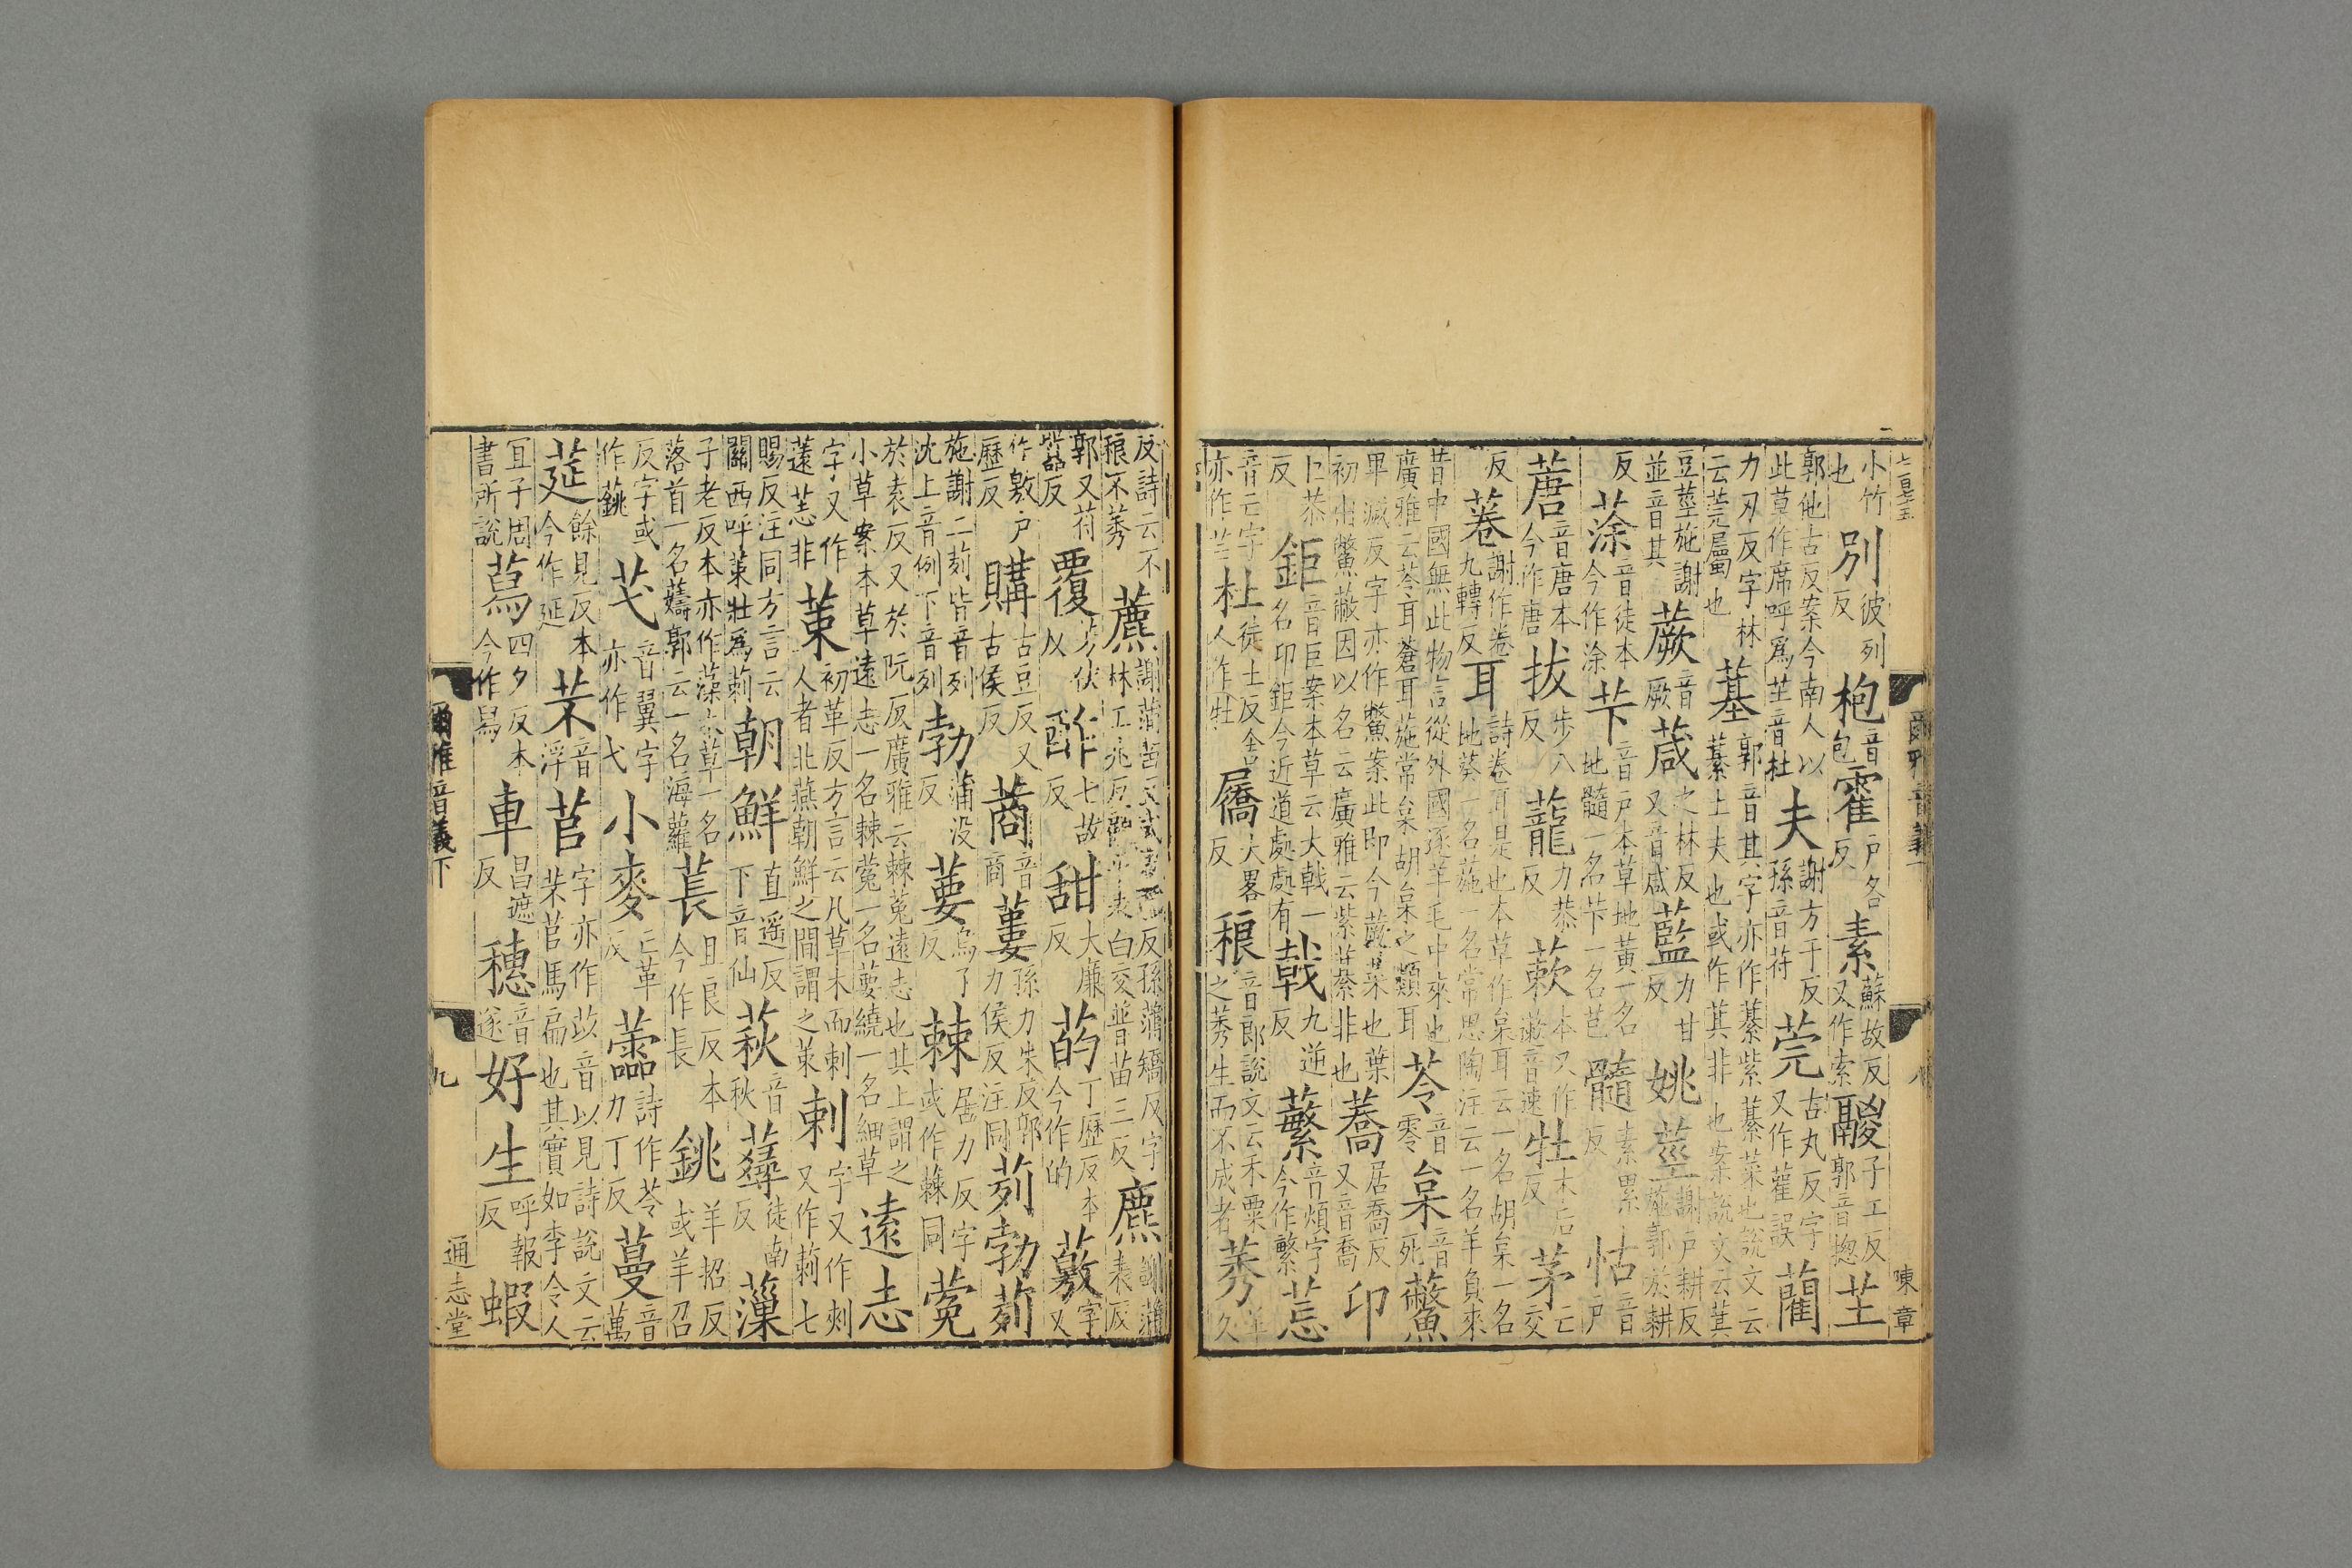 小竹也別彼列反枹音包霍户各反素蘇故反又作索鬷子工反郭音揔芏
郭他古反案今南人以此草作席呼爲芏音杜夫謝方于反孫音苻莞古丸反字又作雚誤藺
力刃反字林云莞屬也藄郭音其字亦作綦紫綦菜也說文云綦土夫也或作萁非也案說文云萁
豆莖施謝並音其蕨音厥葴之林反又音咸藍力甘反姚莖謝户耕反施郭於耕
反蒤音徒本今作涂芐音户本草地黃一名地髓一名芐一名芑髓素累反怙音户
蓎音唐本今作唐拔步八反蘢力恭反蔌本又作漱音速牡木后反茅亡交
反菤謝作卷九轉反耳詩卷耳是也本草作枲耳云一名胡枲一名地葵一名葹一名常思陶注云一名羊負來
昔中國無此物言從外國逐羊毛中來也廣雅云苓耳蒼耳葹常枲胡枲之類耳苓音零枲音死虌
卑滅反字亦作鱉案此即今蕨菜也葉初出鱉蔽因以名云廣雅云紫萁非也蕎居喬反又音喬卭
巨恭反鉅音巨案本草云大戟一名卭鉅今近道處處有戟九逆反蘩音煩字今作繁莣
音亡字亦作芒杜徒土反舍人作牡屩大畧反稂音郎說文云禾粟之莠生而不成者莠羊久
爾雅音義下 八 陳章
反詩云不稂不莠藨謝蒲苗反孫蒲矯反字林工兆反顧平表白交普苗三反麃謝蒲表反
郭又苻囂反覆步伏以酢七故反甜大廉反菂丁歷反本今作的薂字又
作敫户歷反購古豆反又古侯反蔏音商蔞孫力朱反郭力侯反注同茢勃茢
施謝二茢皆音列沈上音例下音列勃蒲没反葽烏了反棘居力反字或作蕀同蒬
於袁反又於阮反廣雅云蕀蒬遠志也其上謂之小草案本草遠志一名棘蒬一名葽繞一名細草遠志
字又作薳莣非茦初革反方言云凡草木而刺人者北燕朝鮮之間謂之茦刺字又作刾又作莿七
賜反注同方言云關西呼茦壯爲莿朝鮮直遥反下音仙萩音秋蕁徒南反薻
子老反本亦作藻本草一名落首一名薚郭云一名海蘿萇且良反本今作長銚羊招反或羊召
反字或作䠷芅音翼字亦作弋小麥亡革反蘦詩作苓力丁反蔓音萬
莚餘見反本今作延芣音浮苢字亦作苡音以見詩說文云芣苢馬舄也其實如李令人
宜子周書所說蕮四夕反本今作舄車昌遮反穗音遂好生呼報反蝦
爾雅音義下 九 通志堂